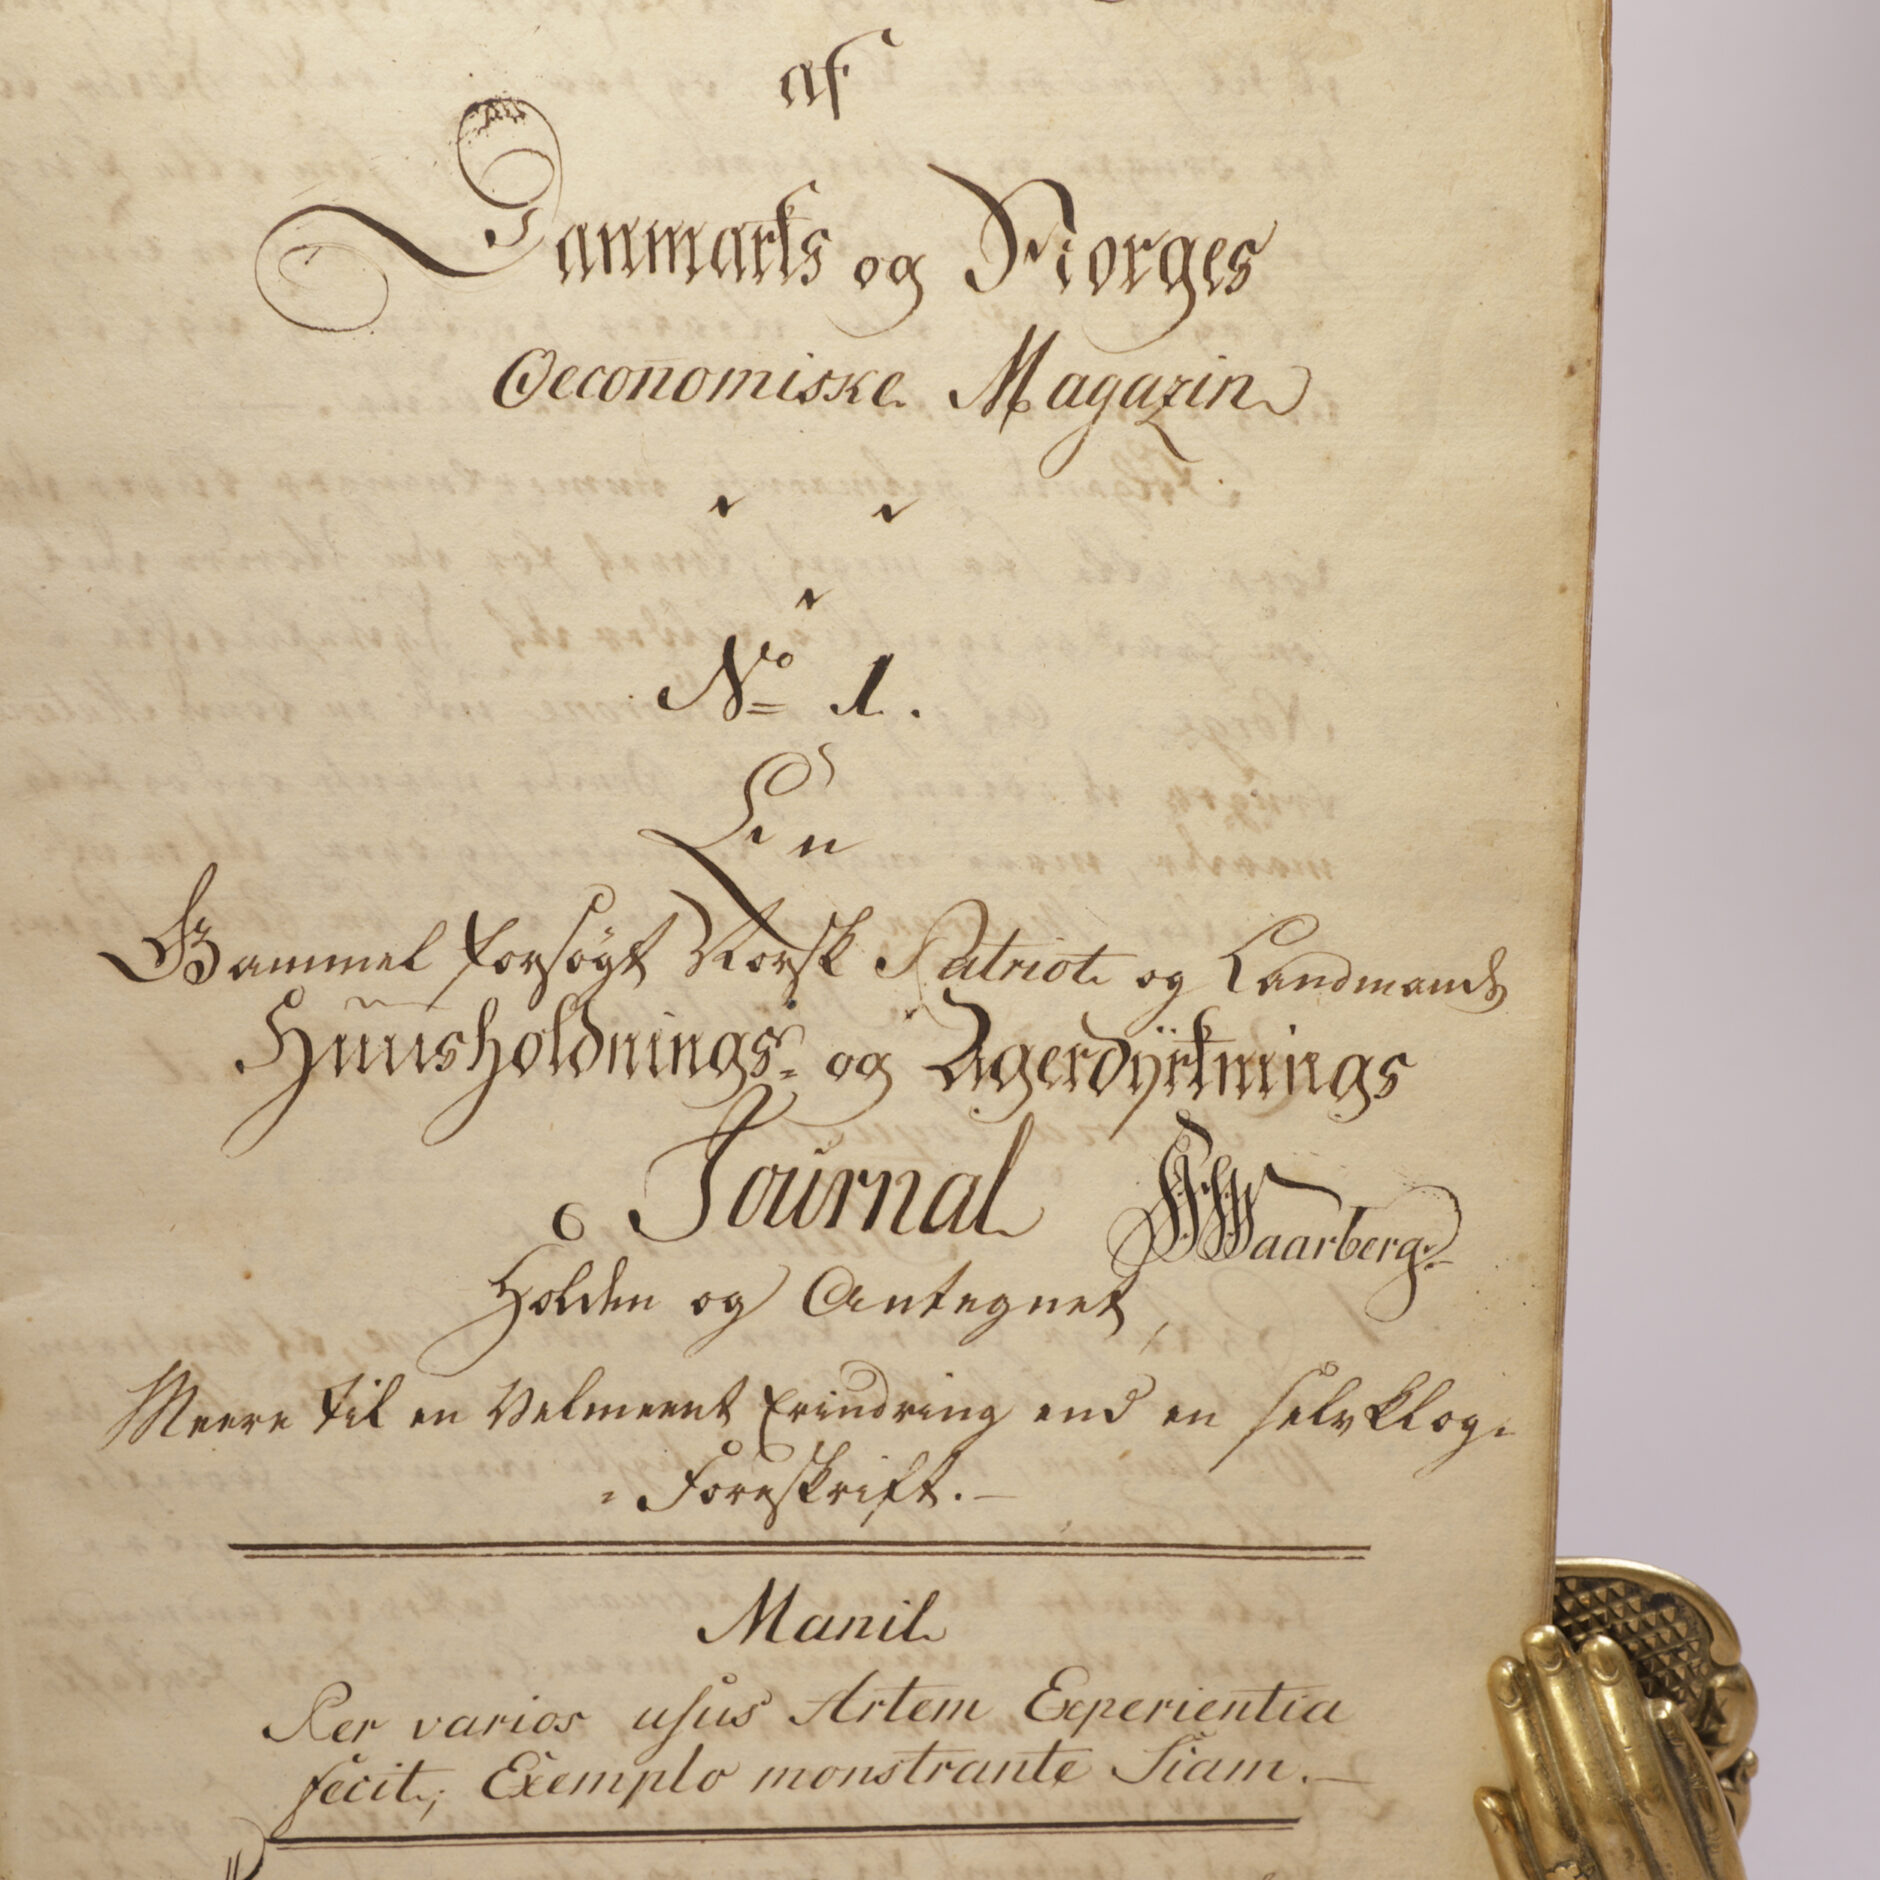 af
Danmarks og Norges
Oeconomiske Magazin
No 1.
En
Gammel forsøgt Norsk Patriot og Landmands
Huusholdnings- og Agerdÿrknings
Journal
Waarberg
Holden og Antegnet,
Meere til en Velmeent Erindring end en selvklog
Foreskrift.
Manil
Per varios usus Artem Experientia
fecit, Exemplo monstrante Viam.